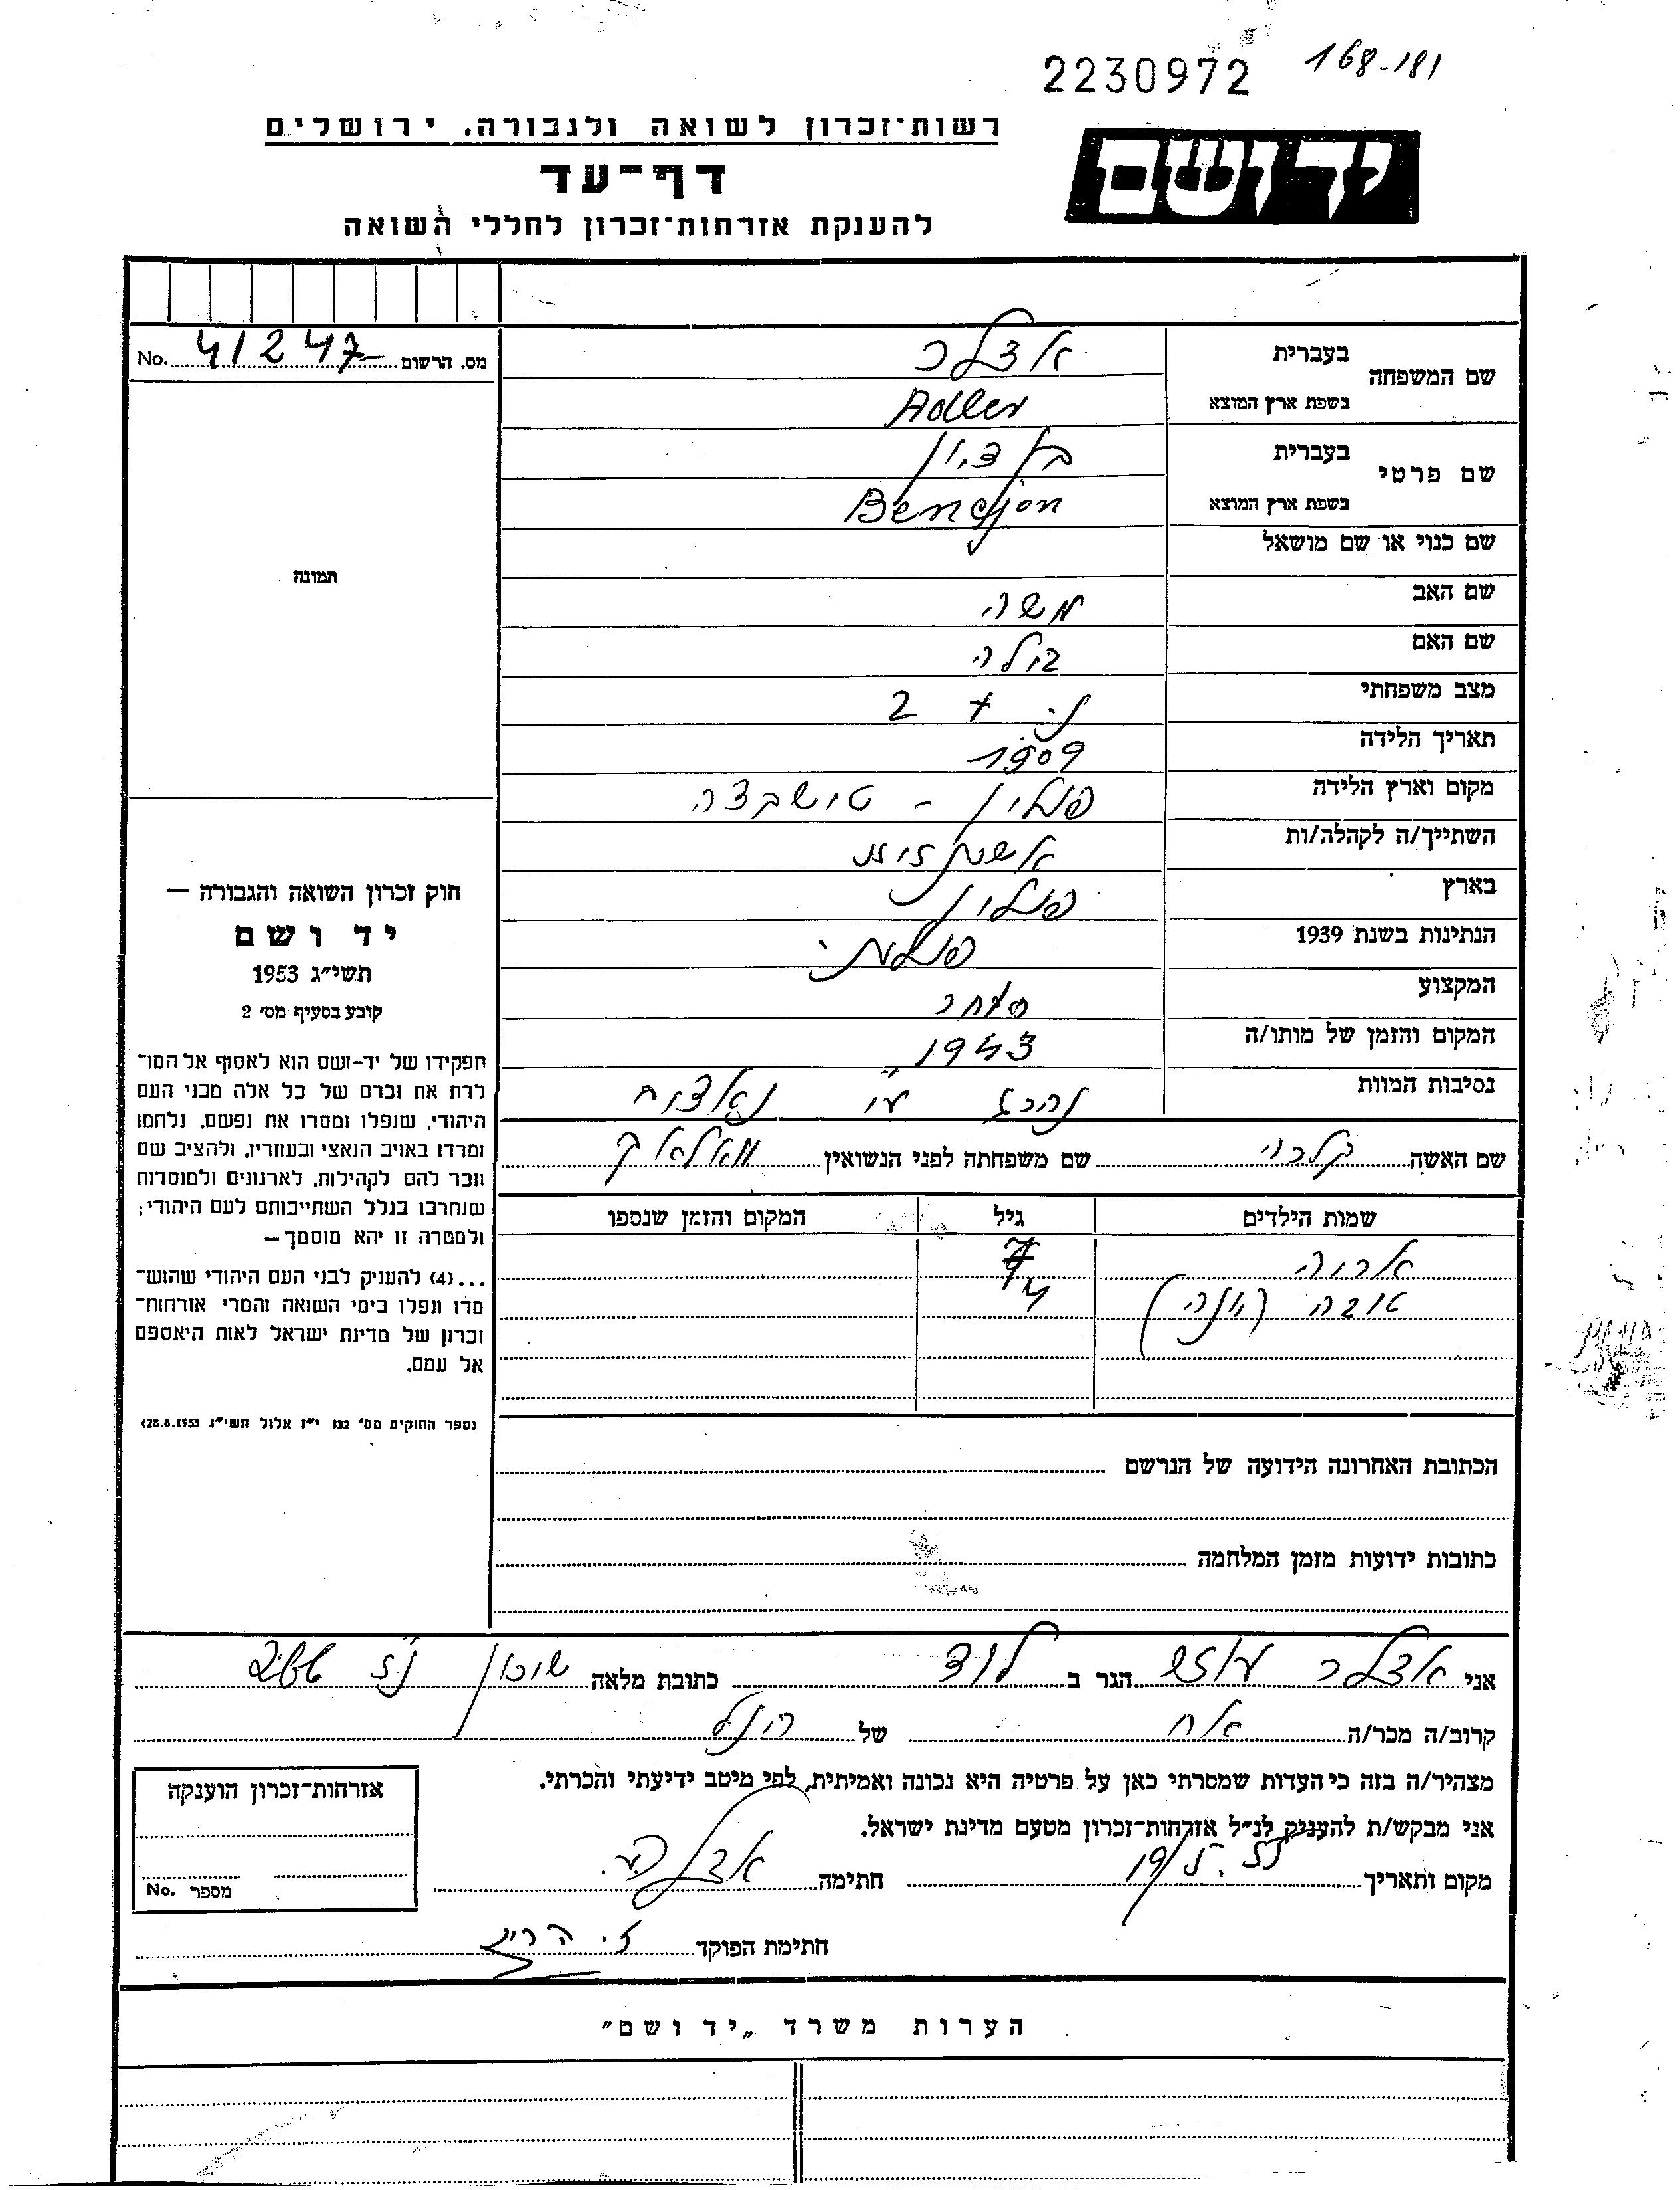 2230972
168-181
רשות־זכרון לשואה ולגבורה, ירושלים
יד ושם
דף־עד
להענקת אזרחות־זכרון לחללי השואה
מס. הרשום 41247 No.
שם המשפחה
בעברית
אדלר
בשפת ארץ המוצא
Adler
שם פרטי
בעברית
בן ציון
בשפת ארץ המוצא
שם כנוי או שם מושאל
שם האב משה
שם האם
מצב משפחתי נ. + 2
תאריך הלידה 1909
מקום וארץ הלידה פולין -
השתייך/ה לקהלה/ות
בארץ פולין
הנתינות בשנת 1939 פולנית
המקצוע סוחר
המקום והזמן של מותו/ה 1943
נסיבות המוות נהרג
שם האשה
שם משפחתה לפני הנשואין
שמות הילדים גיל המקום והזמן שנספו
אריה
טובה 4
הכתובת האחרונה הידועה של הנרשם
כתובות ידועות מזמן המלחמה
תמונה
חוק זכרון השואה והגבורה —
יד ושם
תשי״ג 1953
קובע בסעיף מס׳ 2
תפקידו של יד־ושם הוא לאסוף אל המו־
לדת את זכרם של כל אלה מבני העם
היהודי, שנפלו ומסרו את נפשם, נלחמו
ומרדו באויב הנאצי ובעוזריו, ולהציב שם
וזכר להם לקהילות, לארגונים ולמוסדות
שנחרבו בגלל השתייכותם לעם היהודי;
ולמטרה זו יהא מוסמך —
...(4) להעניק לבני העם היהודי שהוש־
מדו ונפלו בימי השואה והמרי אזרחות־
זכרון של מדינת ישראל לאות היאספם
אל עמם.
(ספר החוקים מס׳ 132 י״ז אלול תשי״ג 28.8.1953)
אני אדלר הגר ב לוד כתובת מלאה שיכון
קרוב/ה מכר/ה אח של הנ״ל
מצהיר/ה בזה כי העדות שמסרתי כאן על פרטיה היא נכונה ואמיתית, לפי מיטב ידיעתי והכרתי.
אני מבקש/ת להעניק לנ״ל אזרחות־זכרון מטעם מדינת ישראל.
מקום ותאריך
חתימה
חתימת הפוקד
אזרחות־זכרון הוענקה
מספר No.
הערות משרד „יד ושם״